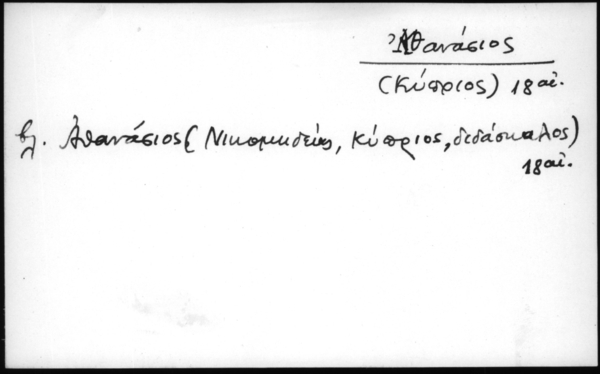 Ἀθανάσιος
(Κύπριος) 18 αἰ.
βλ. Ἀθανάσιος (Νικομηδείας, Κύπριος, διδάσκαλος)
18 αἰ.